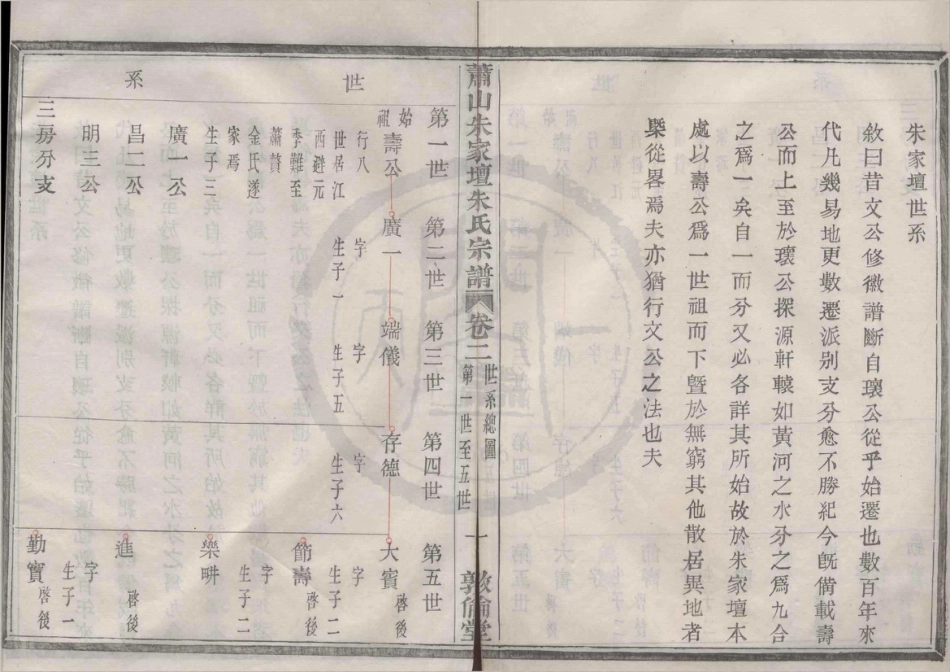 朱家壇世系
敘曰昔文公修徽譜斷自瓌公從乎始遷也數百年來
代凡幾易地更數遷派別支分愈不勝紀今旣備載壽
公而上至於瓌公探源軒轅如黃河之水分之爲九合
之爲一矣自一而分又必各詳其所始故於朱家壇本
處以壽公爲一世祖而下曁於無窮其他散居異地者
槩從畧焉夫亦猶行文公之法也夫
蕭山朱家壇朱氏宗譜 卷二 世系總圖 第一世至五世 一 敦倫堂
世系
第一世 第二世 第三世 第四世 第五世
始祖 壽公 廣一 端儀 存德 大賓 啓後
行八 字 字 字 字
世居江 生子一 生子五 生子六 生子二
西避元
季難至 節壽 啓後
蕭贅 字
金氏遂 生子二
家焉
生子三 樂畊
廣一公
昌二公 進 啓後
明三公 字
生子一
三房分支 勤實 啓後